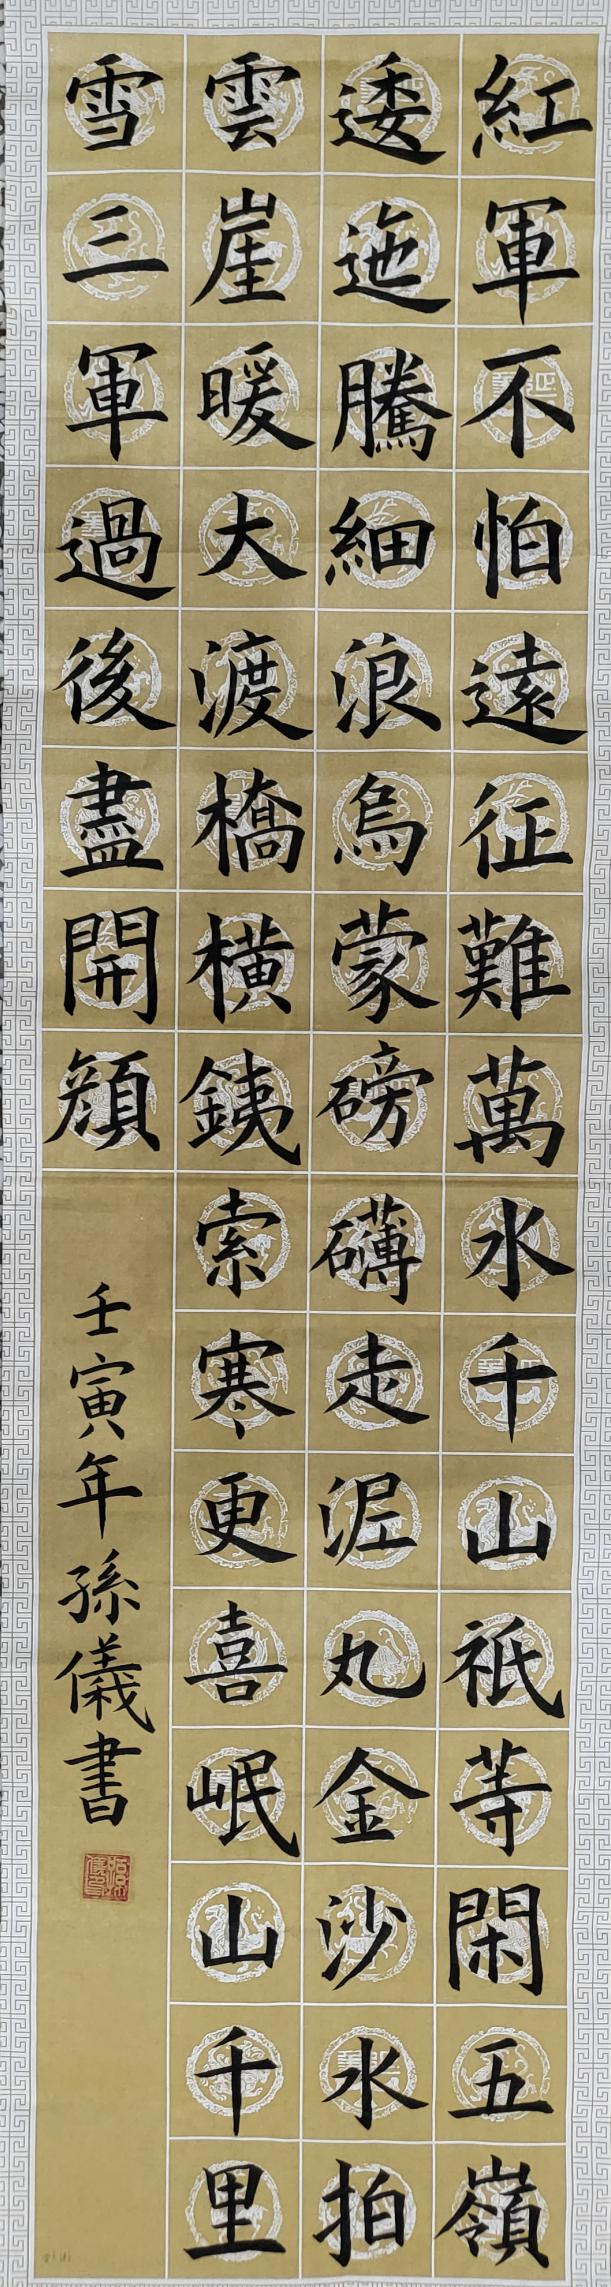 紅軍不怕遠征難萬水千山祇等閑五嶺
逶迤騰細浪烏蒙磅礴走泥丸金沙水拍
雲崖暖大渡橋橫鐵索寒更喜岷山千里
雪三軍過後盡開顏
壬寅年孫儀書